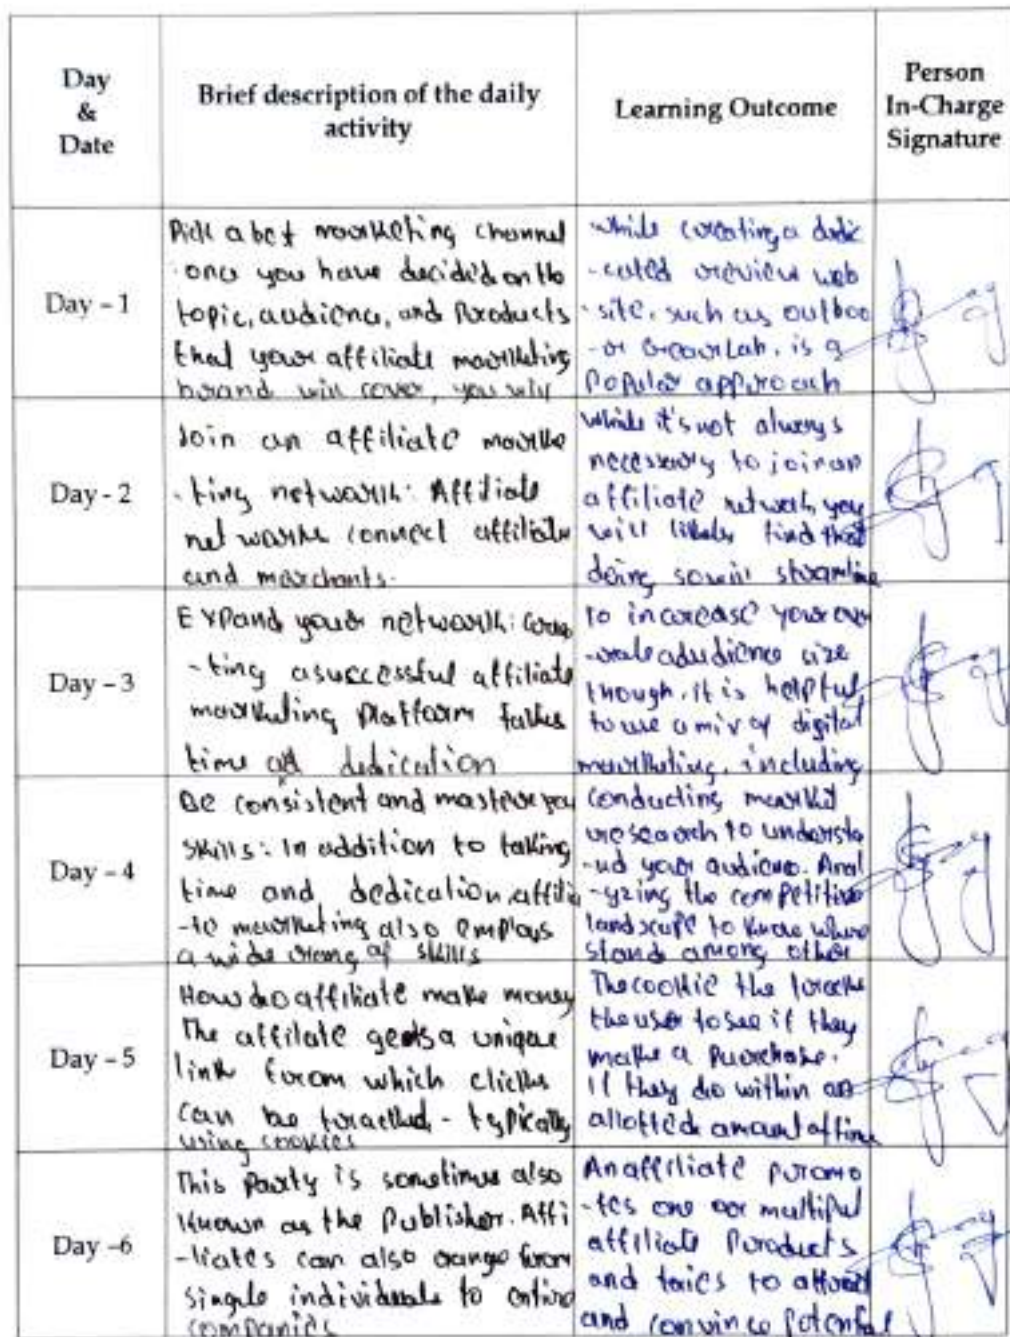 Day & Date
Brief description of the daily activity
Learning Outcome
Person In-Charge Signature
Day - 1
Pick a best marketing channel
once you have decided on the
topic, audience, and Products
that your affiliate marketing
brand will cover, you will
while creating a dedic
-cated review web
-site, such as outdoo
-r GearLab, is a
Popular approach
Day - 2
Join an affiliate marke
-ting network: Affiliate
networks connect affiliate
and marchants.
while it's not always
necessary to join an
affiliate network you
will likely find that
doing so will streamline
Day - 3
Expand your network: Crea
-ting a successful affiliate
marketing Platform takes
time ad dedication
to increase your over
-rale audience size
though, it is helpful
to use a mix of digital
marketing, including
Day - 4
Be consistent and master your
skills: In addition to taking
time and dedication, affilia
-te marketing also employs
a wide rang of skills
Conducting market
research to understa
-nd your audience. Anal
-yzing the competitive
landscape to know where
stands among other
Day - 5
How do affiliate make money
The affilate gets a unique
link from which clicks
can be tracked - typically
using cookies
The cookie the tracks
the user to see if they
make a purchase.
If they do within an
allotted amount of time
Day -6
This Party is sometimes also
known as the Publisher. Affi
-liates can also range from
single individuals to entire
companies
An affiliate promo
-tes one or multipul
affiliate Products
and tries to attract
and convince Potential